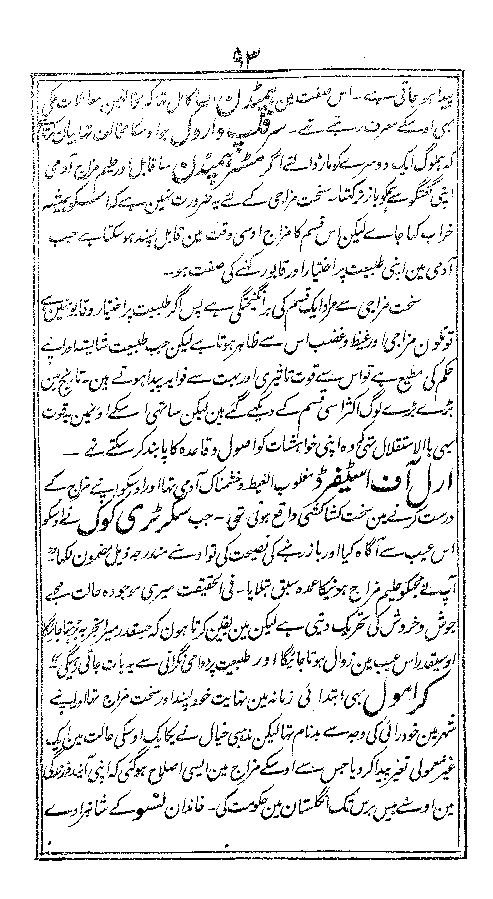 ۹۳
پیدا ہو جاتی ہے۔ اس صفت مین ہمپڈن ایسا کامل تھا کہ مخالفین معاملات ملکی
بھی اوسکے معرف رہتے تھے۔ سر فلپ واروک جو اوسکا مخالف تھا بیان کرتا ہے
کہ ہملوگ ایک دوسرے کو مار ڈالتے اگر مسٹر ہمپڈن سا قابل اور حلیم مزاج آدمی
اپنی گفتگو سے ہمکو باز نہ رکھتا۔ سخت مزاجی کے لئے یہ ضرورت نہین ہے کہ اسکو ہمیشہ
خراب کہا جاے لیکن اس قسم کا مزاج اوسی وقت مین قابل پسند ہو سکتا ہے جب
آدمی مین اپنی طبیعت پر اختیار اور قابو رکھنے کی صفت ہو۔
سخت مزاجی سے مراد ایک قسم کی برانگیختگی ہے پس اگر طبیعت پر اختیار و قابو نہین ہے
تو تلون مزاجی اور غیظ و غضب اس سے ظاہر ہوتا ہے لیکن جب طبیعت شایستہ اور اپنے
حکم کی مطیع ہے تو اس سے قوت تاثیری اور بہت سے فواید پیدا ہوتے ہین۔ تاریخ مین
بڑے بڑے لوگ اکثر اسی قسم کے دیکھے گئے ہین لیکن ساتھی اسکے اونہین یہ قوت
بھی بالاستقلال تھی کہ وہ اپنی خواہشات کو اصول و قاعدہ کا پابند کر سکتے تھے۔
ارل آف اسٹیفرڈ مغلوب الغیظ و خشمناک آدمی تھا اور اوسکو اپنے مزاج کے
درست کرنے مین سخت کشاکشی واقع ہوئی تھی۔ جب سکرٹری کوک نے اوسکو
اس عیب سے آگاہ کیا اور باز رہنے کی نصیحت کی تو اوسنے مندرجہ ذیل مضمون لکھا
آپ نے مجھکو حلیم مزاج ہونیکا عمدہ سبق بتلایا۔ فی الحقیقت میری موجودہ حالت مجھے
جوش و خروش کی تحریک دیتی ہے لیکن مین یقین کرتا ہون کہ جسقدر میرا تجربہ بڑھتا جائیگا
اوسیقدر اس عیب مین زوال ہوتا جائیگا اور طبیعت پر دوامی نگرانی سے یہ بات جاتی رہیگی
کرامول بھی ابتدائی زمانہ مین نہایت خود پسند اور سخت مزاج تھا اور اپنے
شہر مین خود رائی کی وجہ سے بدنام تھا لیکن مذہبی خیال نے یکایک اوسکی حالت مین ایک
غیر معمولی تغیر پیدا کر دیا جس سے اوسکے مزاج مین ایسی اصلاح ہو گئی کہ اپنی آیندہ زندگی
مین اوسنے بیس برس تک انگلستان مین حکومت کی۔ خاندان نسو کے شاہزادے